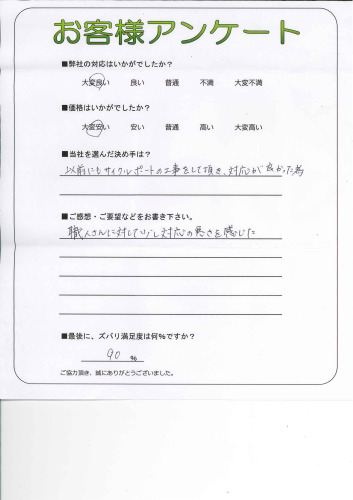 お客様アンケート
■弊社の対応はいかがでしたか?
大変良い 良い 普通 不満 大変不満
■価格はいかがでしたか?
大変安い 安い 普通 高い 大変高い
■当社を選んだ決め手は?
以前にもサイクルポートの工事をして頂き、対応が良かった為
■ご感想・ご要望などをお書き下さい。
職人さんに対して少し対応の悪さを感じた
■最後に、ズバリ満足度は何%ですか?
90 %
ご協力頂き、誠にありがとうございました。